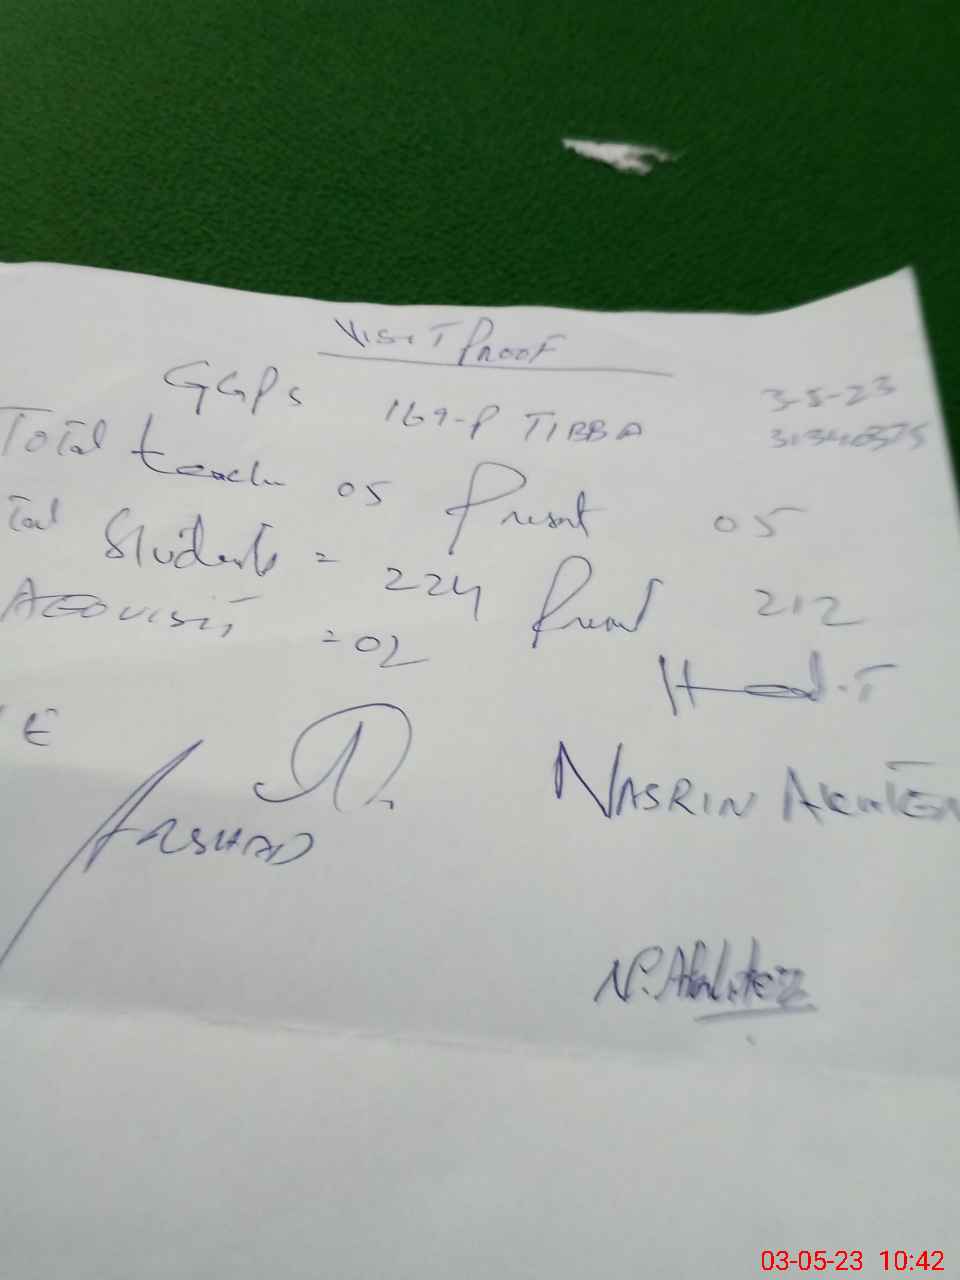 Visit Proof
GGPS 169-P TIBBA 3-5-23
31340375
Total teach 05 Present 05
Students = 224 Present 212
AEO visit = 02
Head.T
E
NASRIN AKHTER
ARSHAD
N. Akhter
03-05-23 10:42